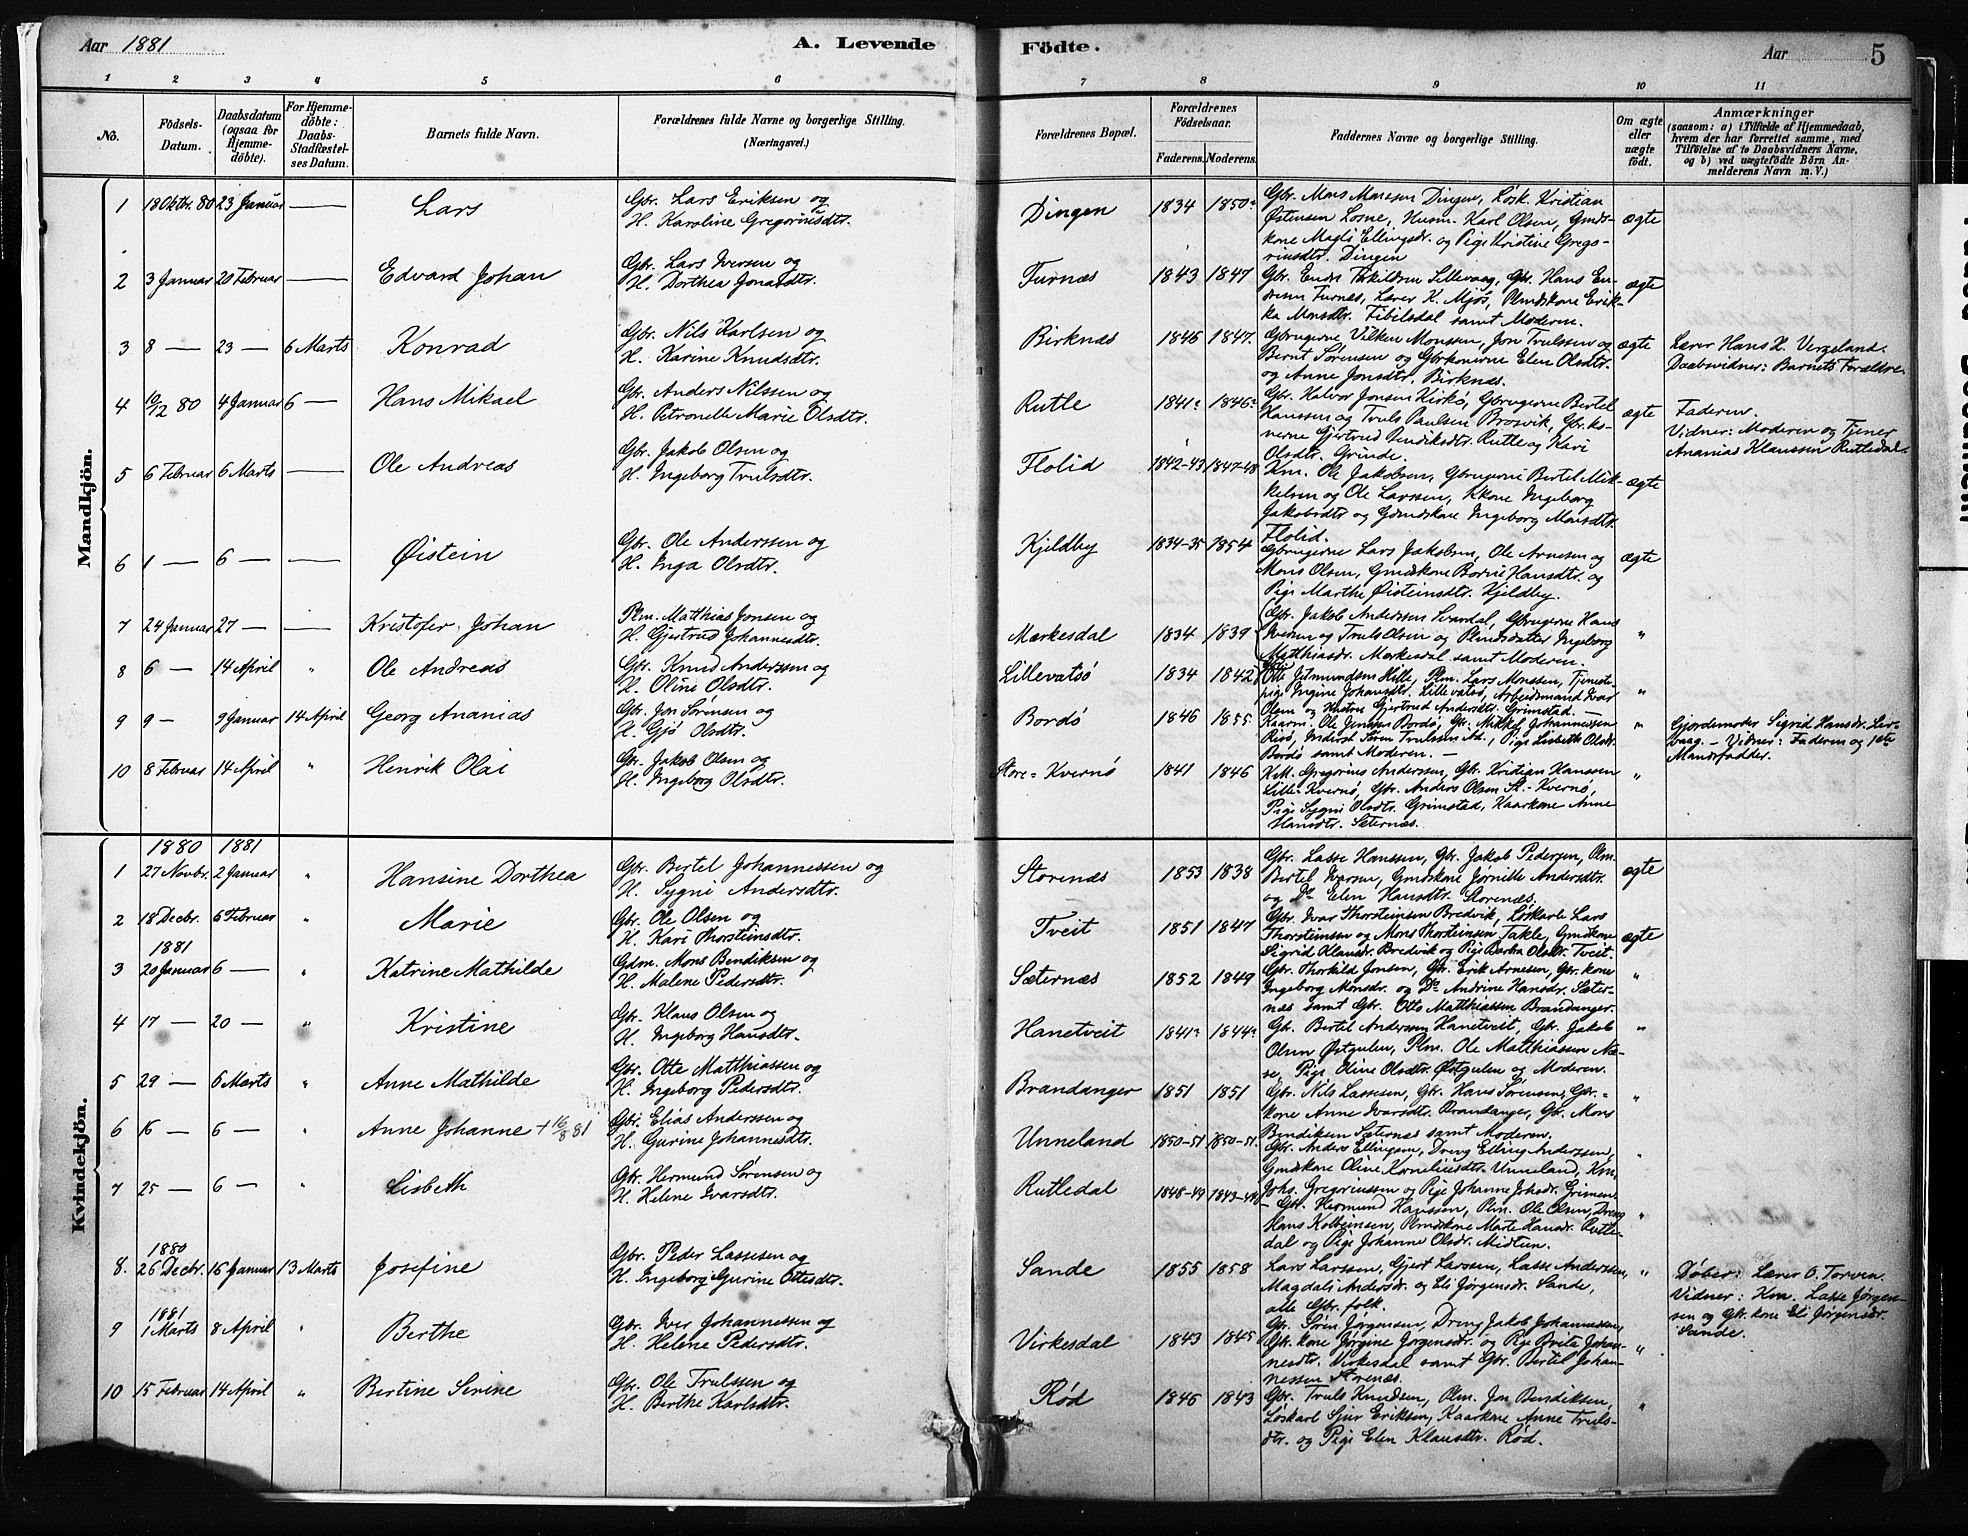 Aar 1881 A. Levende Födte. Aar 5
1 2 3 4 5 6 7 8 9 10 11
No.
Födsels-Datum.
Daabsdatum (ogsaa for Hjemmedöbte).
For Hjemmedöbte: Daabs-Stadfæstelses Datum.
Barnets fulde Navn.
Forældrenes fulde Navne og borgerlige Stilling. (Næringsvei.)
Forældrenes Bopæl.
Forældrenes Födselsaar.
Faderens. Moderens.
Faddernes Navne og borgerlige Stilling.
Om ægte eller uægte födt.
Anmærkninger
(saasom: a) i Tilfælde af Hjemmedaab,
hvem der har forrettet samme, med
Tilföielse af to Daabsvidners Navne,
og b) ved uægtefödte Börn Anmelderens Navn m. V.)
Mandkjön.
1 18 Oktbr. 80 23 Januar — Lars
Gbr. Lars Eriksen og
H. Karoline Gregoriusdtr.
Dingen 1834 1850
Gbr. Mons Monsen Dingen, Løsk. Kristian
Østensen Losne, Husm. Karl Olsen, Gmdskone
Magli Ellingsdr. og Pige Kristine Gregoriusdtr.
Dingen
ægte
2 3 Januar 20 Februar — Edvard Johan
Gbr. Lars Iversen og
H. Dorthea Jonasdtr.
Furnæs 1843 1847
Gbr. Lillevaag, Gbr. Hans Endresen
Furnæs, Lærer K. Mjøs, Plmdskone Erikka
Monsdtr. samt Moderen.
ægte
3 8 — 23 — 6 Marts Konrad
Gbr. Nils Karlsen og
H. Karine Knudsdtr.
Birknæs 1846 1847.
Gbrugerne Vilken Monssen, Jon Trulssen og
Bernt Sørensen og Gbrkonerne Elen Olsdtr.
og Anne Jonsdtr. Birknæs.
ægte
Lærer Hans H. Vergeland.
Daabsvidner: Barnets Forældre.
4 10/12 80 4 Januar 6 — Hans Mikael
Gbr. Anders Nilssen og
H. Petronelle Marie Olsdtr.
Rutle 1841 1846
Gbr. Halvor Jonsen Kirkø, Gbrugerne Bertel
Hanssen og Truls Paulsen Brosvik, Gbr.konerne
Gjertrud Rutle og Kari
Olsdtr. Grinde.
ægte
Faderen.
Vidner: Moderen og Tjener
Ananias Klaussen Rutledal.
5 6 Februar 6 Marts — Ole Andreas
Gbr. Jakob Olsen og
H. Ingeborg Trulsdtr.
Flolid 1842-43 1847-48
Km. Ole Jakobsen, Gbrugerne Bertel Mikkelsen
og Ole Larssen, Kkone Ingeborg
Jakobsdtr og Gmdskone Ingeborg Monsdtr.
Flolid.
ægte
6 1 — 6 — — Øistein
Gbr. Ole Anderssen og
H. Inga Olsdtr.
Kjeldby 1834-35 1854
Gbrugerne Lars Jakobsen, Ole Arnesen og
Mons Olsen, Gmdskone Hansdtr. og
Pige Marthe Øisteinsdtr. Kjeldby.
ægte
7 24 Januar 27 — — Kristofer Johan
Plm. Matthias Jonsen og
H. Gjertrud Johannesdtr.
Mærkesdal 1834 1839
Gbr. Jakob Anderssen Svardal, Gbrugerne Hans
Iversen og Truls Olsen og Plmdsdatter Ingeborg
Matthiasdr. Mærkesdal samt Moderen.
"
8 6 — 14 April " Ole Andreas
Gbr. Knud Anderssen og
H. Oline Olsdtr.
Lillevatsø 1834 1842
Otte Hille, Plm. Lars Monssen, Tjenestepige
Ingine Johansdtr. Lillevatsø, Arbeidsmand Ivar
Olsen og Gjertrud Andersdtr. Grimstad.
"
9 9 — 9 Januar 14 April Georg Ananias
Gbr. Jon Sørensen og
H. Gjø Olsdtr.
Bordø 1846 1855
Kaarm. Ole Jensen Bordø, Gbr. Mikkel Johannessen
Risø, Søren Trulssen, Pige Lisbeth Olsdr.
Bordø samt Moderen. —
"
Gjordemoder Sigrid Hansdr. Lervaag.
— Vidner: Faderen og 1ste
Mandfadder.
10 8 Februar 14 April " Henrik Olai
Gbr. Jakob Olsen og
H. Ingeborg Olsdtr.
Store-Kvernø 1841 1846
K.M. Gregorius Anderssen, Gbr. Kristian Hanssen
Lille-Kvernø, Gbr. Anders Olsen St.-Kvernø,
Pige Sygni Olsdtr. Grimstad, Kaarkone Anne
Hansdtr. Sæternæs.
"
Kvindekjön.
1880 1881
1 27 Novbr. 2 Januar " Hansine Dorthea
Gbr. Bertel Johannessen og
H. Sygni Andersdtr.
Storenæs 1853 1838
Gbr. Lasse Hanssen, Gbr. Jakob Pedersen, Plm.
Bertel Iversen, Gmdskone Jørnille Andersdtr.
og Do Elen Hansdtr. Storenæs.
ægte
2 18 Decbr. 6 Februar " Marie
Gbr. Ole Olsen og
H. Kari Thorsteinsdtr.
Tveit 1851 1847
Gbr. Ivar Thorsteinsen Bredvik, Løskarle Lars
Thorsteinssen og Mons Thorsteinsen Takle, Gmdkone
Sigrid Klausdr. Bredvik og Pige Barbra Olsdtr. Tveit.
ægte
1881
3 20 Januar 6 — " Katrine Mathilde
Gdm. Mons Bendiksen og
H. Malene Pedersdtr.
Sæternæs 1852 1849
Gbr. Thorkild Jonsen, Gbr. Erik Arnesen, Gbr. kone
Ingeborg Monsdr. og Do Andrine Hansdr. Sæternæs
samt Gbr. Otto Matthiassen Brandanger.
"
4 17 — 20 — " Kristine
Gbr. Klaus Olsen og
H. Ingeborg Hansdtr.
Hanetveit 1841 1844
Gbr. Bertil Anderssen Hanetveit, Gbr. Jakob
Olsen Østgulen, Plm. Ole Matthiassen Næse,
Pige Oline Olsdtr. Østgulen og Moderen.
"
5 29 — 6 Marts " Anne Mathilde
Gbr. Otte Matthiassen og
H. Ingeborg Pedersdtr.
Brandanger 1851 1851
Gbr. Nils Lassesen, Gbr. Hans Sørensen, Gbr.kone
Anne Ivarsdtr. Brandanger, Gbr. Mons
Bendiksen Sæternæs samt Moderen.
"
6 16 — 6 — " Anne Johanne + 16/8 81
Gbr. Elias Anderssen og
H. Gurine Johannesdtr.
Unneland 1850-51 1850-51.
Gbr. Anders Ellingsen, Dreng Elling Anderssen,
Gmdskone Oline Korneliusdtr. Unneland, Km.
Johs. Gregoriussen og Pige Johanne Johsdr. Grimen.
"
7 25 — 6 — " Lisbeth
Gbr. Hermund Sørensen og
H. Helene Ivarsdtr.
Rutledal 1848-49 1843-44
— Gbr. Hermund Hanssen, Plm. Ole Olsen, Dreng
Hans Kolbeinsen, Plmdskone Marte Hansdr. Rutledal
og Pige Johanne Olsdr. Midtun.
"
1880
8. 26 Decbr. 16 Januar 13 Marts Josefine
Gbr. Peder Lassesen og
H. Ingeborg Gurine Ottesdtr.
Sande 1855 1858
Lars Larssen, Gjert Larssen, Lasse Anderssen,
Magdali Andersdr. og Eli Jørgensdr. Sande,
alle Gbr. folk.
"
Døber: Lærer O. Torven.
Vidner: Km. Lasse Jørgensen
og Gbr. kone Eli Jørgensdr.
Sande.
1881
9 1 Marts 8 April " Berthe
Gbr. Iver Johannessen og
H. Helene Pedersdtr.
Virkesdal 1843 1845
Gbr. Søren Jørgensen, Dreng Jakob Johannessen,
Gbr. kone Jørgine Jørgensdr. og Pige Brita Johannesdtr.
Virkesdal samt Gbr. Bertel Johannessen
Storenæs.
"
10 15 Februar 14 April " Bertine Serine
Gbr. Ole Trulssen og
H. Berthe Karlsdtr.
Rød 1846 1843
Gbr. Truls Knudsen, Plm. Jon Bendiksen,
Løskarl Sjur Eriksen, Kaarkone Anne Trulsdtr.
og Pige Elen Klausdtr. Rød.
"